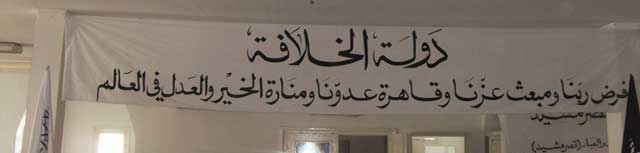 دولة الخلافة
فرض ربنا ومبعث عزنا وقاهرة عدونا ومنارة الخير والعدل في العالم